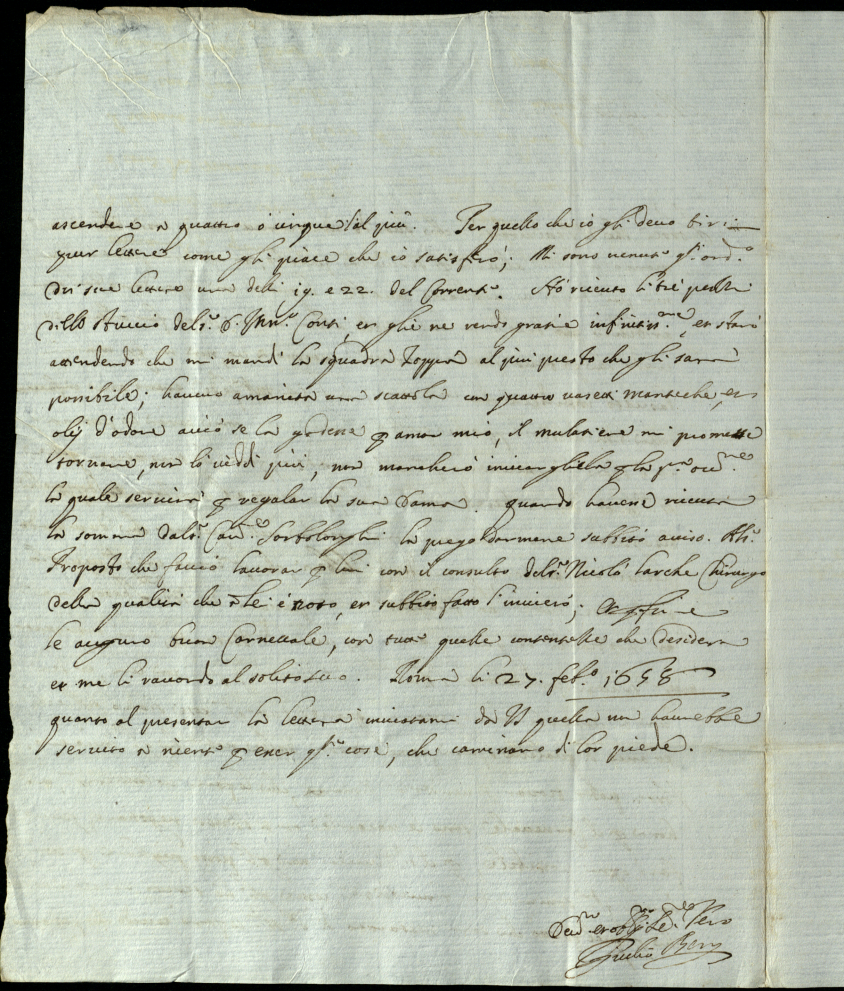 ascendere a quattro ò cinque al più. Per quello che io gli devo
pur lettere come gli piace che io satisferò; Mi sono venute
sue lettere una delli 19. e 22. del Corrente. Hò ricevuto li tre pezzi
dello stuccio del s.r Conti, et glie ne rendo gratie infinitiss.me, et starò
attendendo che mi mandi la squadra Zoppa al più presto che gli sarà
possibile; havevo amanita una scattola con quattro vasetti mantiche, et
olij d'odore acciò se la godesse amor mio, il mulatiere mi promesse
tornare, non lo viddi più, non mancherò inviargliela
la quale servirà regalar la sua Dama. quando haverà ricevuta
la somma dal s.r la prego darmene subbito aviso. Al s.r
Proposto che faccio lavorar lui con il consulto del s.r Nicolò Larche Chirurgo
della qualità che à lei è noto, et subbito fatto l'invierò;
le auguro buon Carnevale, con tutte quelle contentezze che desidera
et me li raccordo al solito suo. Roma li 27. feb.o 1658
quanto al presentar la lettera inviatami da VS quella non haverebbe
servito a niente esser q.te cose, che caminano di lor piede.
Giulio